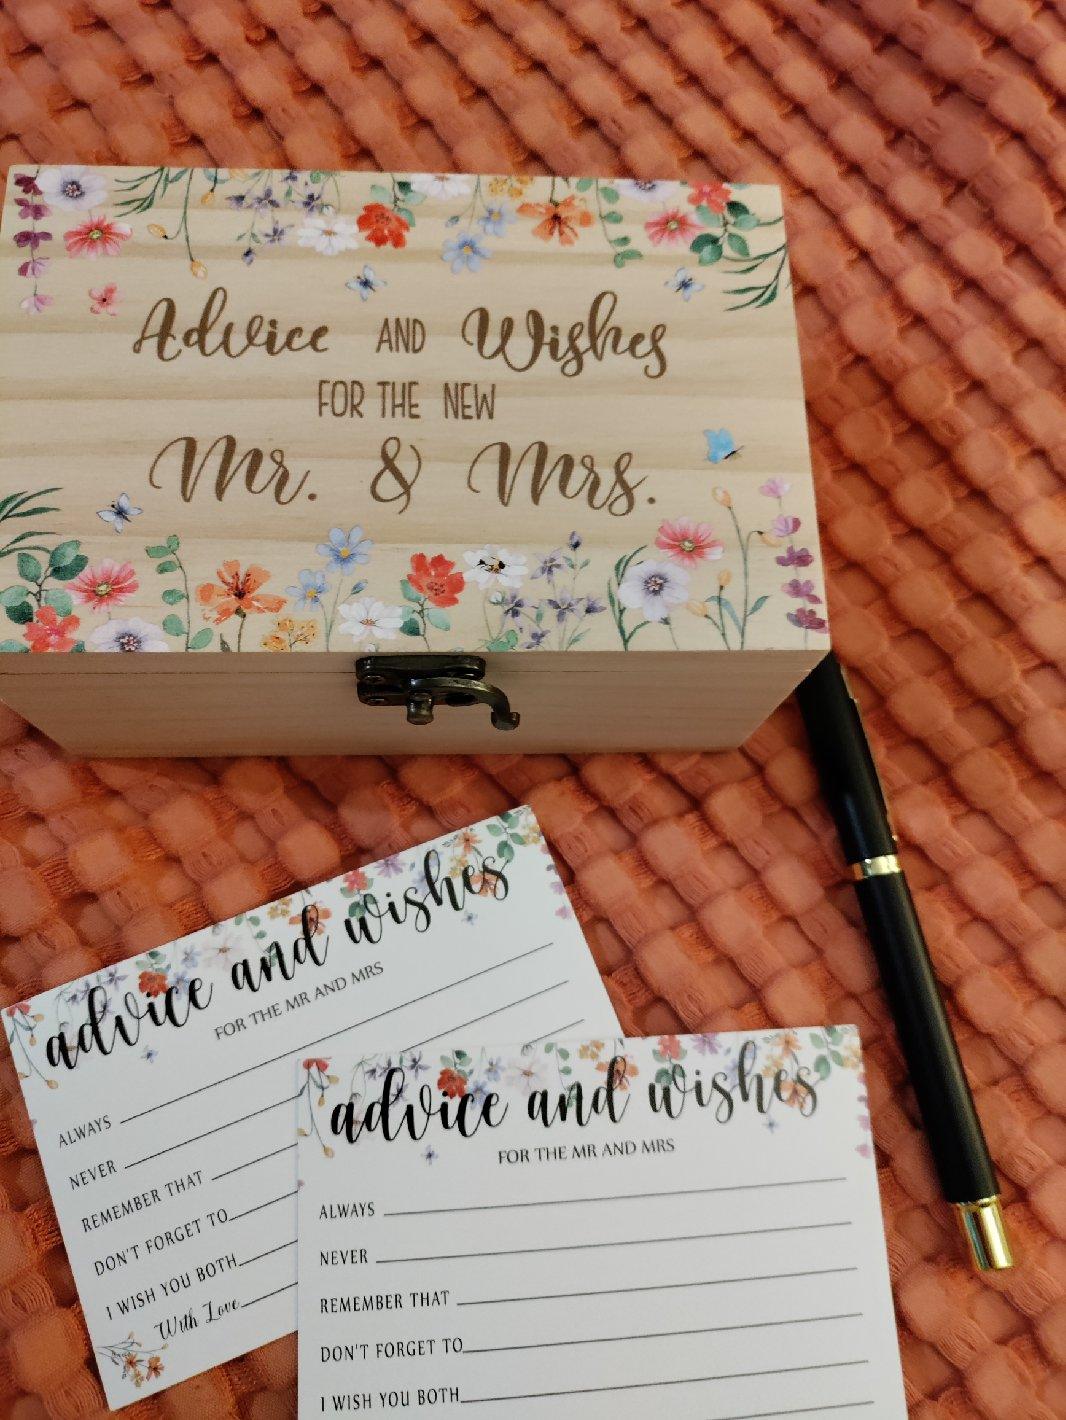 Advice AND Wishes
FOR THE NEW
Mr. & Mrs.
advice and wishes
FOR THE MR AND MRS
ALWAYS
NEVER
REMEMBER THAT
DON'T FORGET TO
I WISH YOU BOTH
With Love
advice and wishes
FOR THE MR AND MRS
ALWAYS
NEVER
REMEMBER THAT
DON'T FORGET TO
I WISH YOU BOTH